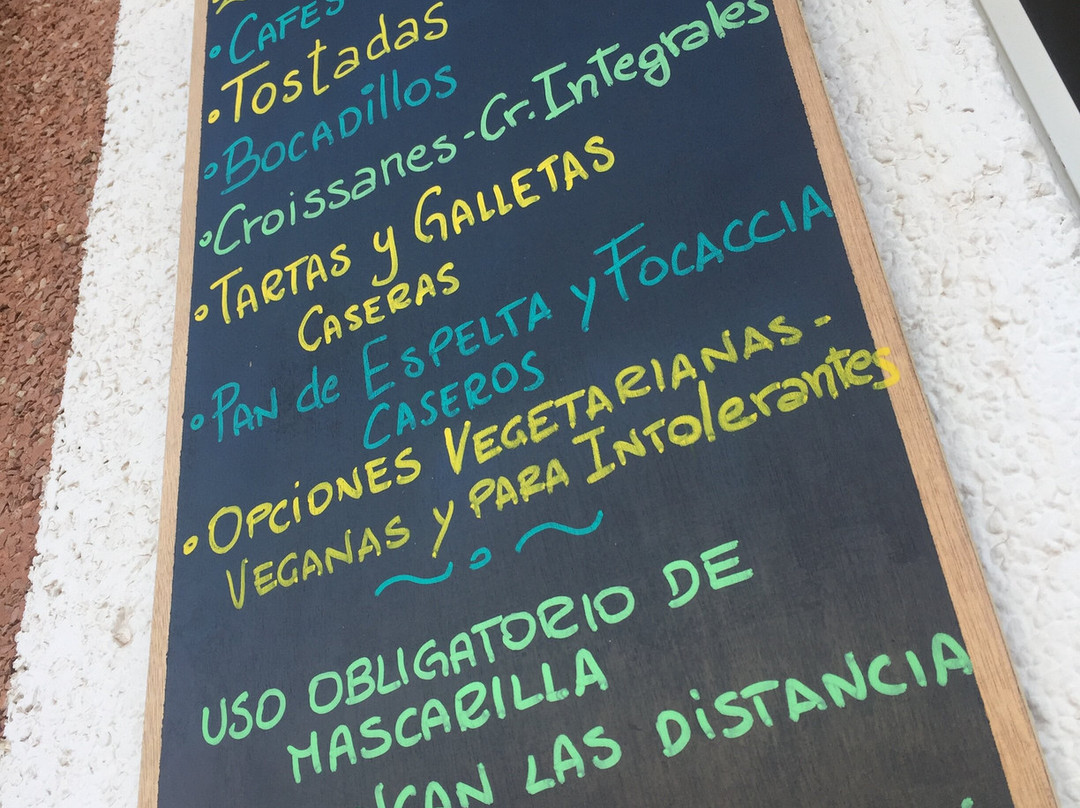 • CAFES
• Tostadas
• BOCADillos
• Croissanes - Cr. Integrales
• TARTAS y GALLETAS
CASERAS
• PAN de ESPELTA y FOCACCIA
CASEROS
• OPCiONES VEGETARIANAS -
VEGANAS y PARA INTolerantes
USO OBLIGATORIO DE
MASCARILLA
LAS DiSTANCIA